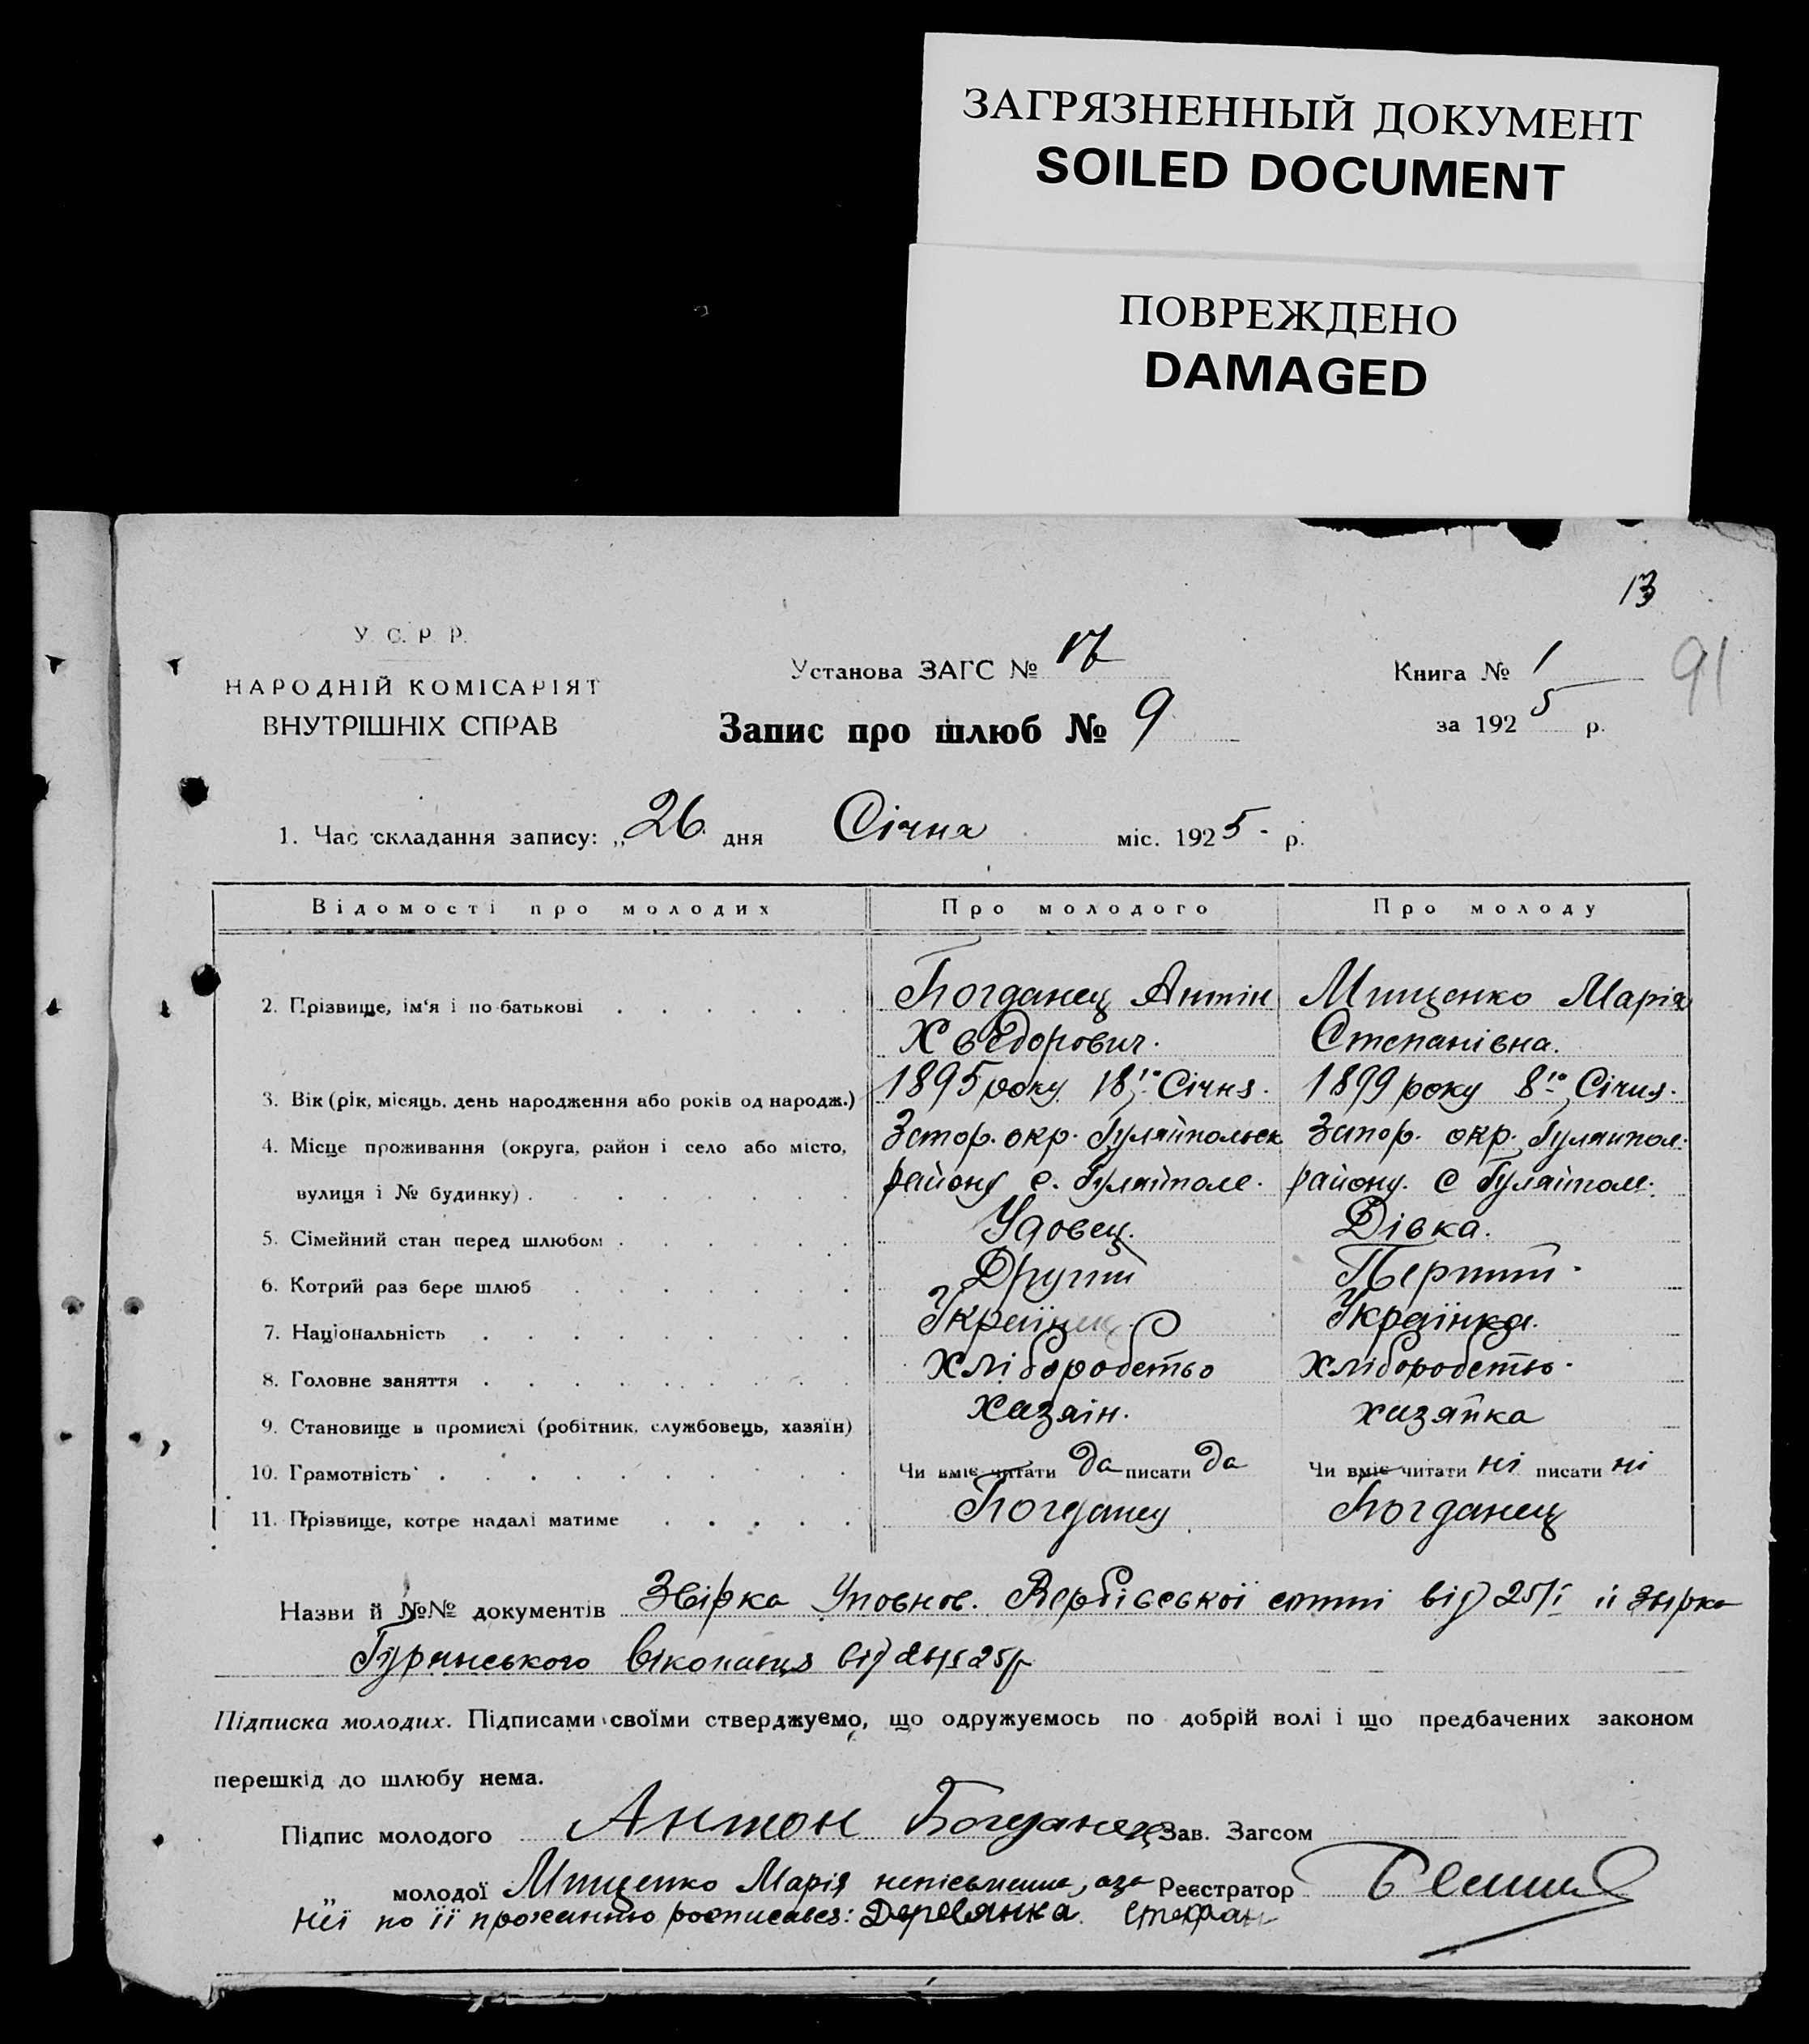 ЗАГРЯЗНЕННЫЙ ДОКУМЕНТ
SOILED DOCUMENT
ПОВРЕЖДЕНО
DAMAGED
13
91
У. С. Р. Р.
НАРОДНІЙ КОМІСАРІЯТ
ВНУТРІШНІХ СПРАВ
Установа ЗАГС № 17
Запис про шлюб № 9
Книга № 1
за 1925 р.
1. Час складання запису: „26 дня Січня міс. 1925 р.
Відомості про молодих Про молодого Про молоду
2. Прізвище, ім'я і по-батькові Богданец Антін Мищенко Марія
Хведорович. Степанівна.
3. Вік (рік, місяць, день народження або років од народж.) 1895 року 18го Січня. 1899 року 8го Січня.
4. Місце проживання (округа, район і село або місто, Запор. окр. Гуляйпольск Запор. окр. Гуляйпол.
вулиця і № будинку) району с. Гуляйполе. району. с Гуляйполе.
5. Сімейний стан перед шлюбом Удовец. Дівка.
6. Котрий раз бере шлюб Другий Перший.
7. Національність Українец. Українка.
8. Головне заняття Хліборобство Хліборобство.
9. Становище в промислі (робітник, службовець, хазяїн) Хазяін. хазяйка
10. Грамотність Чи вміє читати да писати да Чи вміє читати ні писати ні
11. Прізвище, котре надалі матиме Богданец Богданец
Назви й №№ документів Звірка Уповнов. Вербівської сотні від 25/I
від
Підписка молодих. Підписами своїми стверджуємо, що одружуємось по добрій волі і що предбачених законом
перешкід до шлюбу нема.
Підпис молодого Антон Богданец Зав. Загсом
„ молодої Мищенко Марія неписьменна, а за Реєстратор
неї по її проханню росписався: Деревянка Стефан